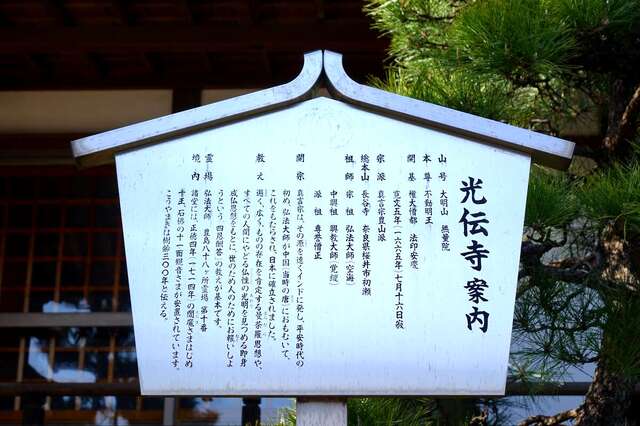 光伝寺案内
山号 大明山 無量院
本尊 不動明王
開基 権大僧都 法印安慶
寛文五年(一六六五年)七月十六日寂
宗派 真言宗豊山派
総本山 長谷寺 奈良県桜井市初瀬
祖師 宗祖 弘法大師(空海)
中興祖 興教大師(覚鑁)
派祖 専誉僧正
開宗 真言宗は、その源を遠くインドに発し、平安時代の
初め、弘法大師が中国(当時の唐)におもむいて、
これをもたらされ、日本に確立されました。
教え 遍く、広くものの存在を肯定する曼荼羅思想や、
すべての人間にやどる仏性の光明を見つめる即身
成仏思想をもとに、世のため人のためにお報いしよ
うという(四恩報答)の教えが基本です。
霊場 弘法大師 豊島八十八ヶ所霊場 第十番
境内 諸堂には、正徳四年(一七一四年)の閻魔さまはじめ
千王、石佛の十一面観音さまが安置されています。
こうやまきは樹齢三〇〇年と伝える。